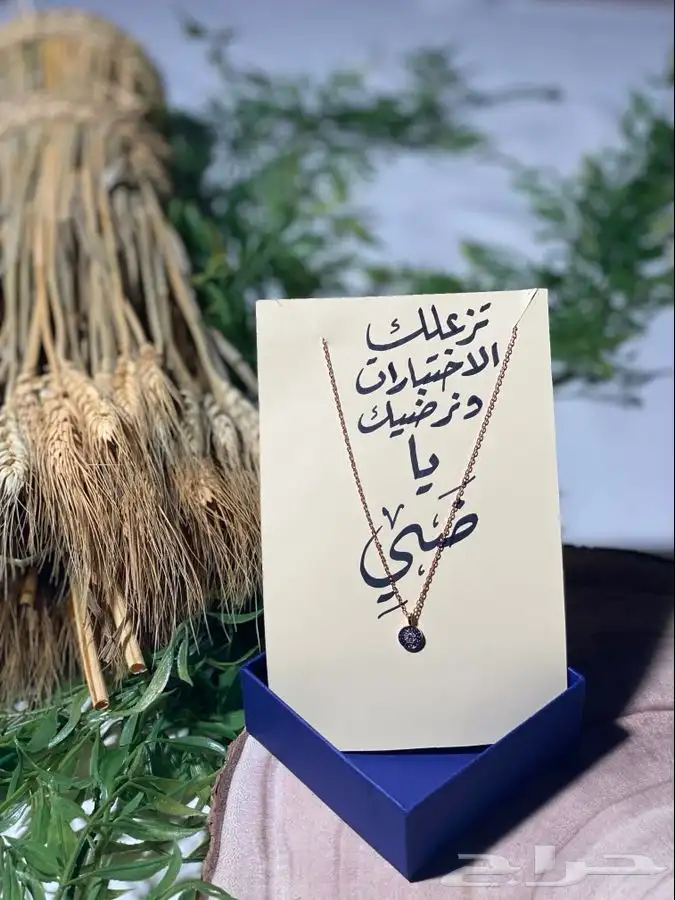 تزعلك
الاختبارات
ونرضيك
يا
ضَي
حراج